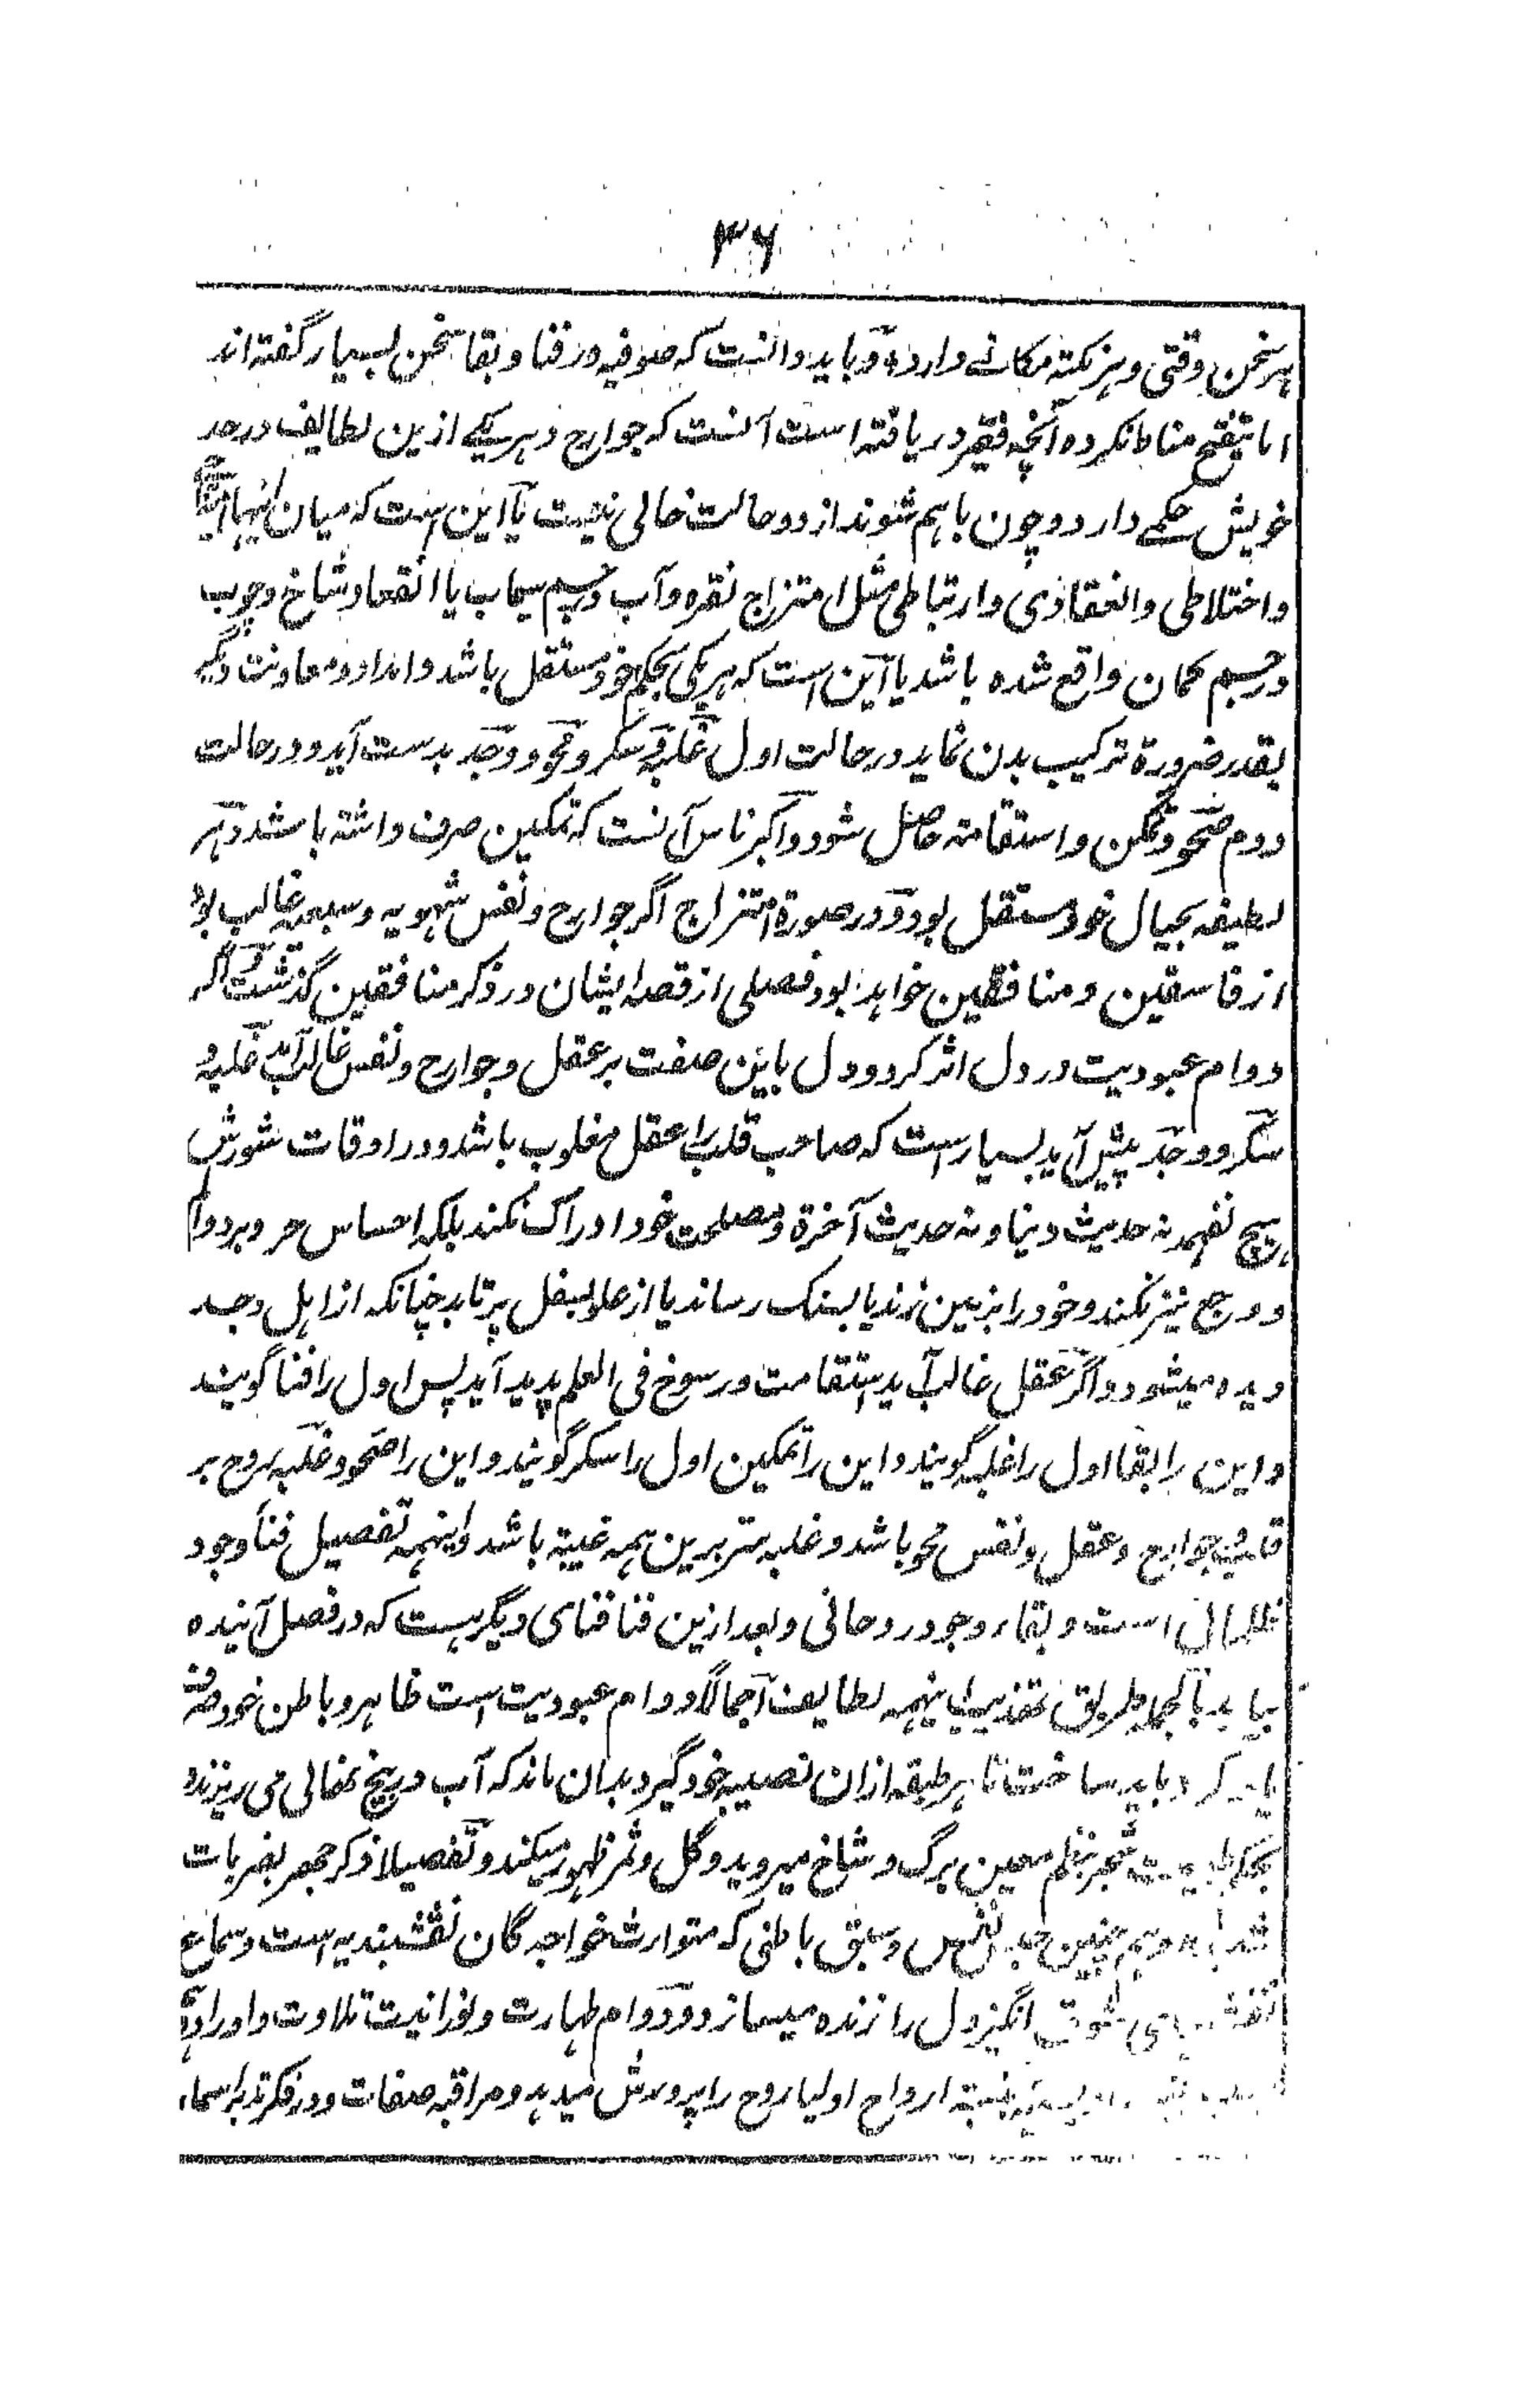 ۳۶
هر سخن وقتی و هر نکته مکانے دارد و باید دانست که صوفیه در فنا و بقا سخن بسیار گفته اند
اما تنقیح مناط نکرده آنچه فقیر دریافته است آنست که جوارح و هر یکے ازین لطایف در حد
خویش حکمے دارد و چون با هم شوند از دو حالت خالی نیست یا این است که میان اینها
و اختلاطی و انعقادی و ارتباطی مثل امتزاج نقره و آب در جسم سیماب یا انعقاد شاخ و چوب
در جسم کمان واقع شده باشد یا این است که هر یکی بحکم خود مستقل باشد و امداد و معاونت دیگر
بقدر ضرورة ترکیب بدن نماید در حالت اول غلبه و سکر و محو و وجد بدست آید و در حالت
دوم صحو و تمکن و استقامته حاصل شود و اکبر ناس آنست که تمکین صرف داشته باشد و هر
لطیفه بحیال خود مستقل بود و در صورة امتزاج اگر جوارح و نفس شهویه و سبعیه غالب بود
از فاسقین و منافقین خواهد بود فصلی از قصه ایشان در ذکر منافقین گذشت و اگر
دوام عبودیت در دل اثر کرد و دل باین صفت بر عقل و جوارح و نفس غالب آید غلبه و
سکر و وجد پیش آید بسیار است که صاحب قلب را عقل مغلوب باشد و در اوقات شورش
هیچ نفهمد نه حدیث دنیا و نه حدیث آخرة و مصلحت خود ادراک نکند بلکه احساس حر و برد و الم
و وجع نیز نکند و خود را بزمین زند یا بسنگ رساند یا از علو بسفل پرتابد چنانکه از اهل وجد
دیده میشود و اگر عقل غالب آید استقامت و رسوخ فی العلم پدید آید پس اول را فنا گویند
و این را بقا اول را غلبه گویند و این را تمکین اول را سکر گویند و این را صحو و غلبه روح بر
قلب و جوارح و عقل و نفس محو باشد و غلبه سر برین همه غیبة باشد و اینهمه تفصیل فناء وجود
ظلمانی است و بقاء وجود روحانی و بعد ازین فنا فنای دیگر هست که در فصل آینده
بیاید بالجمله طریق تهذیب اینهمه لطایف اجمالا دوام عبودیت است ظاهر و باطن خود وقف
کرد باید ساخت تا هر طبقه ازان نصیبه خود گیرد بدان ماند که آب در بیخ نهالی می ریزند و
بحکم طبیعت شجر بنظم معین برگ و شاخ میروید و گل و ثمر ظهور میکند و تفصیلا ذکر جهر بضربات
و همچنین حبس نفس و سبق باطنی که متوارث خواجه گان نقشبندیه است و سماع
شوق انگیز دل را زنده میسازد و دوام طهارت و نورانیت تلاوت و اوراد
نسبة ارواح اولیا روح را پرورش میدهد و مراقبه صفات و در فکر تدبر اسماء